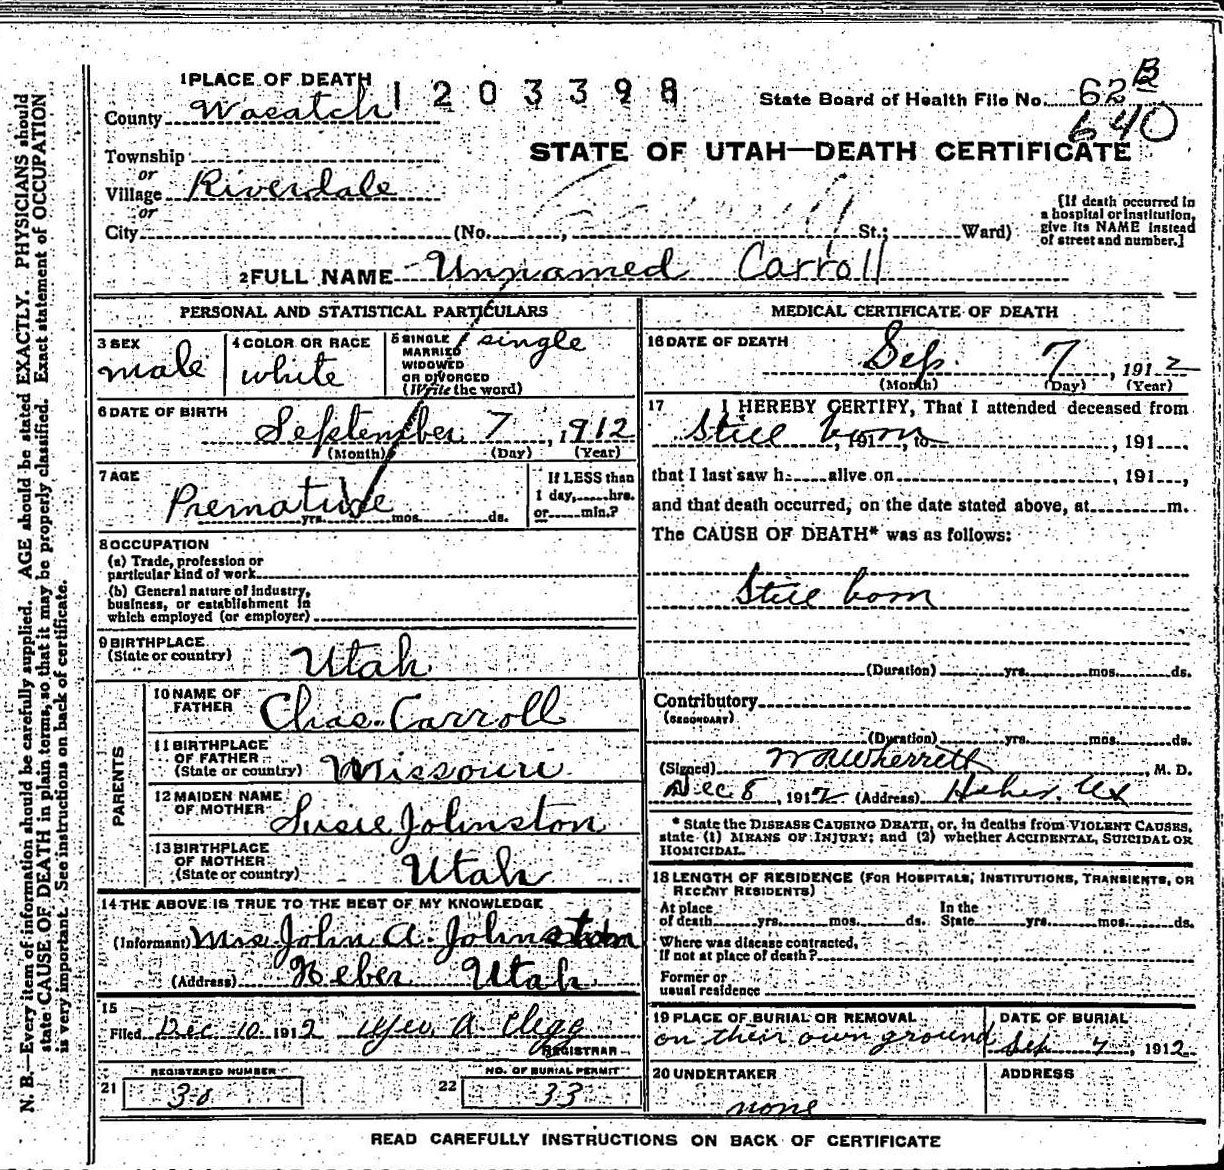 1 PLACE OF DEATH
1203398
State Board of Health File No. 62 B
640
County Wasatch
STATE OF UTAH—DEATH CERTIFICATE
Township
or
Village Riverdale
or
City (No. , St.; Ward)
[If death occurred in
a hospital or institution,
give its NAME instead
of street and number.]
2 FULL NAME Unnamed Carroll
PERSONAL AND STATISTICAL PARTICULARS
3 SEX
male
4 COLOR OR RACE
white
5 SINGLE
MARRIED
WIDOWED
OR DIVORCED
(Write the word)
single
6 DATE OF BIRTH
September 7, 1912
(Month) (Day) (Year)
7 AGE
Premature
yrs. mos. ds.
If LESS than
1 day, hrs.
or min.?
8 OCCUPATION
(a) Trade, profession or
particular kind of work
(b) General nature of industry,
business, or establishment in
which employed (or employer)
9 BIRTHPLACE
(State or country)
Utah
PARENTS
10 NAME OF
FATHER
Chas. Carroll
11 BIRTHPLACE
OF FATHER
(State or country)
Missouri
12 MAIDEN NAME
OF MOTHER
Susie Johnston
13 BIRTHPLACE
OF MOTHER
(State or country)
Utah
14 THE ABOVE IS TRUE TO THE BEST OF MY KNOWLEDGE
(Informant) Mrs John A. Johnston
(Address) Heber Utah
15
Filed Dec 10 1912 Geo. A. Clegg
REGISTRAR
REGISTERED NUMBER
21 30
NO. OF BURIAL PERMIT
22 33
MEDICAL CERTIFICATE OF DEATH
16 DATE OF DEATH
Sep. 7, 1912
(Month) (Day) (Year)
17 I HEREBY CERTIFY, That I attended deceased from
Still born, 191, to , 191,
that I last saw h alive on , 191,
and that death occurred, on the date stated above, at m.
The CAUSE OF DEATH* was as follows:
Still born
(Duration) yrs. mos. ds.
Contributory
(SECONDARY)
(Duration) yrs. mos. ds.
(Signed) W R Wherritt, M. D.
Dec 8, 1912 (Address) Heber, Ut
* State the DISEASE CAUSING DEATH, or, in deaths from VIOLENT CAUSES,
state (1) MEANS OF INJURY; and (2) whether ACCIDENTAL, SUICIDAL OR
HOMICIDAL.
18 LENGTH OF RESIDENCE (FOR HOSPITALS, INSTITUTIONS, TRANSIENTS, OR
RECENT RESIDENTS)
At place
of death yrs. mos. ds.
In the
State yrs. mos. ds.
Where was disease contracted,
If not at place of death?
Former or
usual residence
19 PLACE OF BURIAL OR REMOVAL
on their own ground
DATE OF BURIAL
Sep. 7, 1912
20 UNDERTAKER
none
ADDRESS
READ CAREFULLY INSTRUCTIONS ON BACK OF CERTIFICATE
N. B.—Every item of information should be carefully supplied. AGE should be stated EXACTLY. PHYSICIANS should
state CAUSE OF DEATH in plain terms, so that it may be properly classified. Exact statement of OCCUPATION
is very important. See instructions on back of certificate.